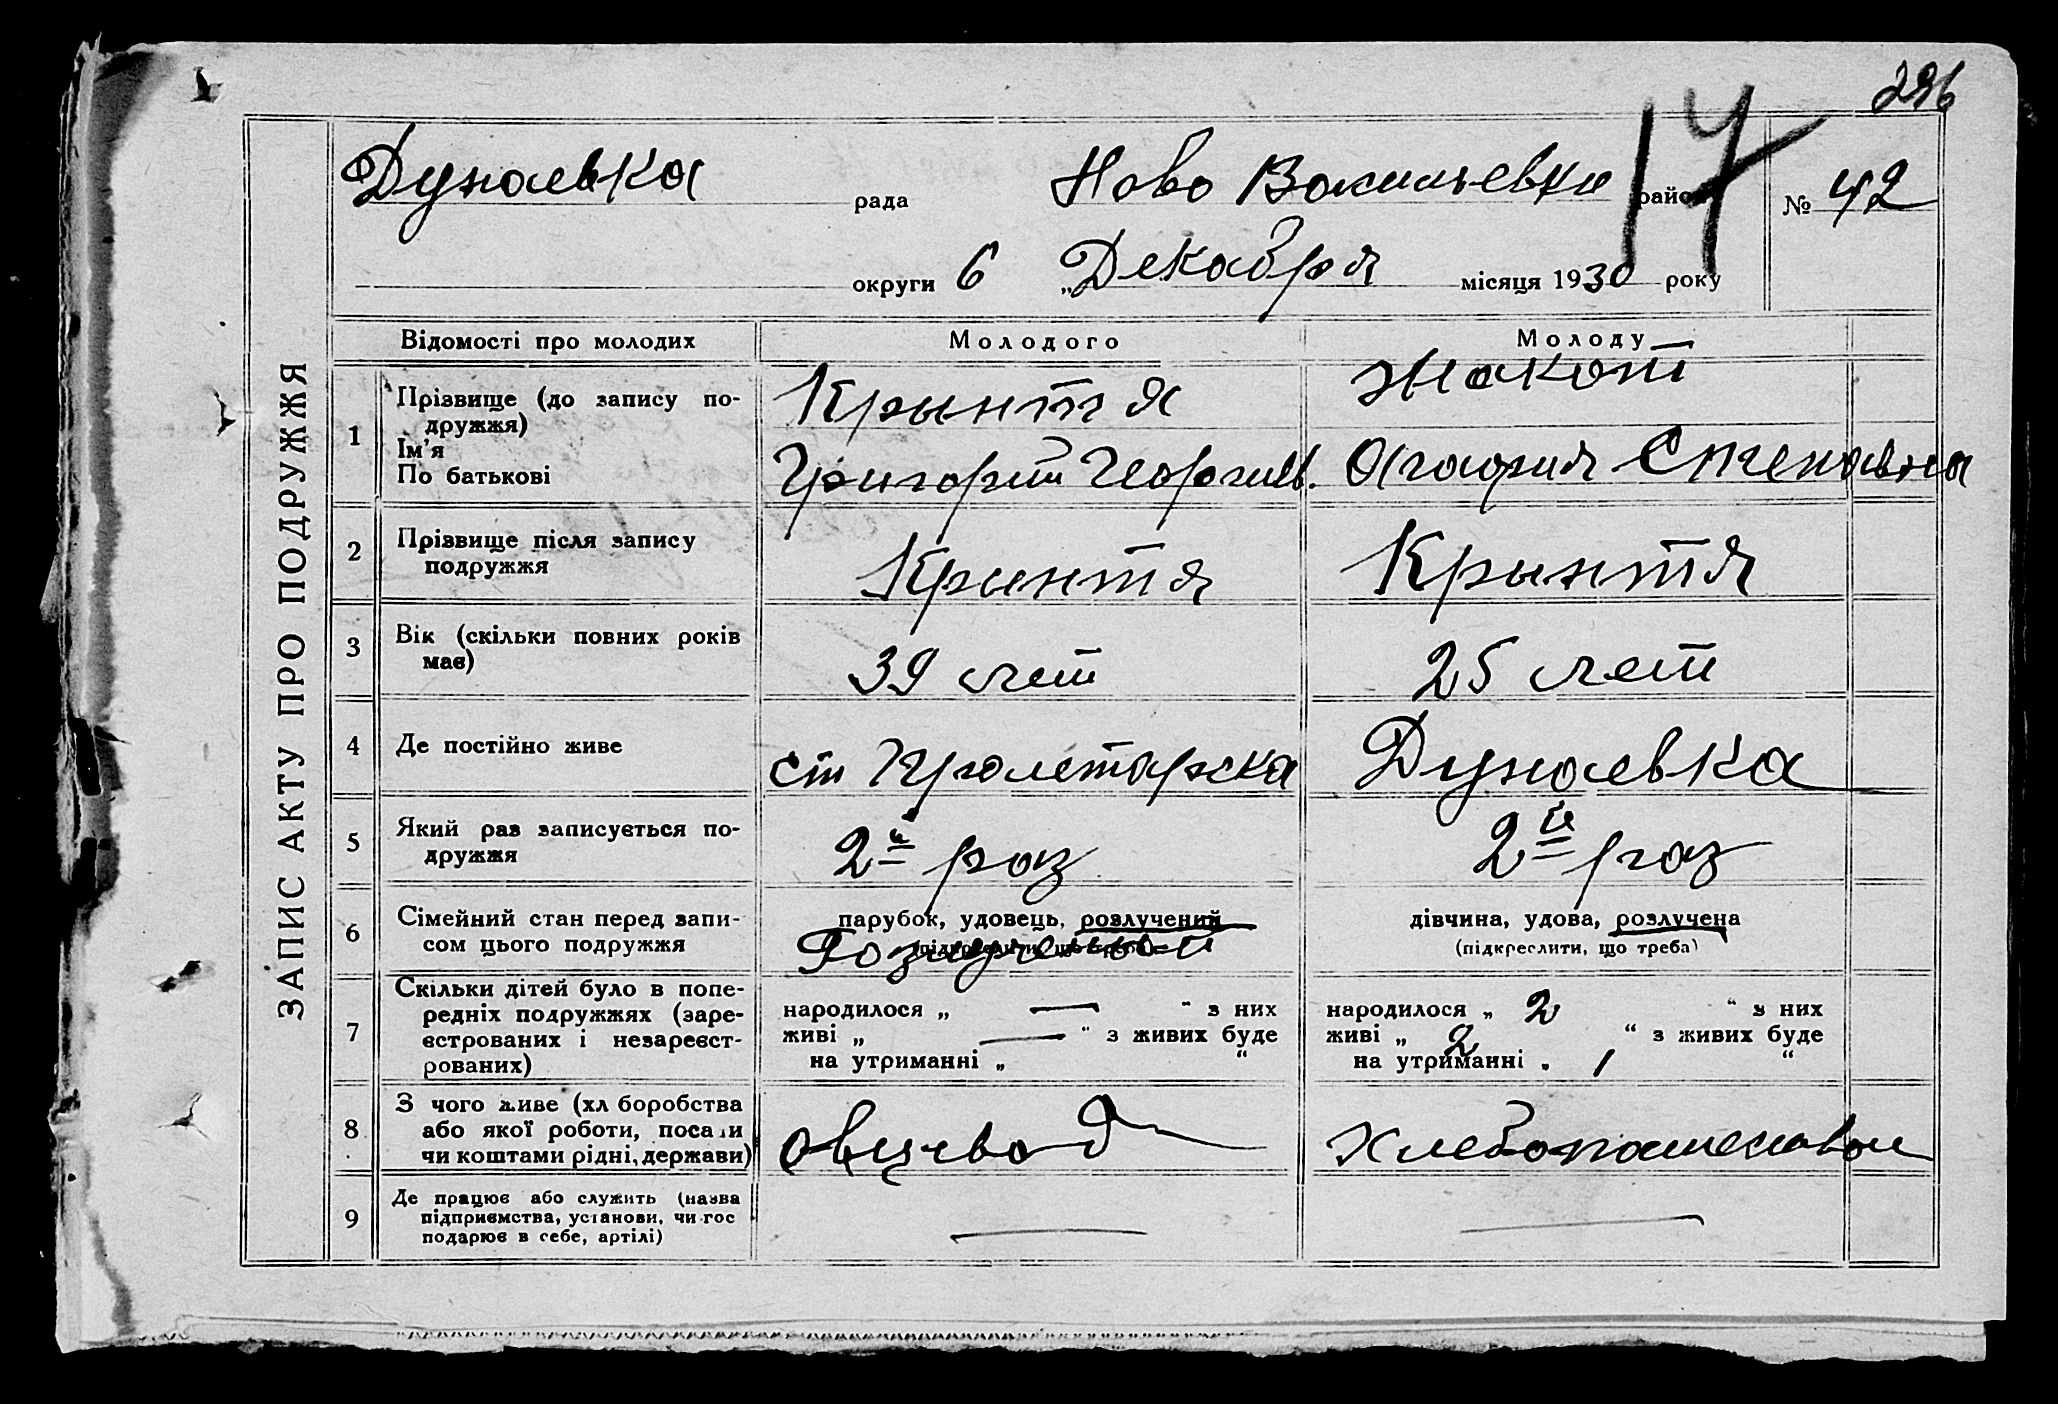 296
14
Дунаевка рада Ново Васильевки район № 42
округи 6 „Декабря місяця 1930 року
ЗАПИС АКТУ ПРО ПОДРУЖЖЯ
Відомості про молодих
Молодого
Молоду
1
Прізвище (до запису по-
дружжя)
Ім'я
По батькові
Крынтя
Григорий Георгиев.
Жакот
Агафия Степановна
2
Прізвище після запису
подружжя
Крынтя
Крынтя
3
Вік (скільки повних років
має)
39 лет
25 лет
4
Де постійно живе
ст Пролетарска
Дунаевка
5
Який раз записується по-
дружжя
2й раз
2й раз
6
Сімейний стан перед запи-
сом цього подружжя
парубок, удовець, розлучений
Розлученый
дівчина, удова, розлучена
(підкреслити, що треба)
7
Скільки дітей було в попе-
редніх подружжях (заре-
єстрованих і незареєст-
рованих)
народилося „ — “ з них
живі „ — “ з живих буде
на утриманні „ “
народилося „ 2 “ з них
живі „ 2 “ з живих буде
на утриманні „ 1 “
8
З чого живе (хл боробства
або якої роботи, посади
чи коштами рідні, держави)
овцевод
Хлебопашеством
9
Де працює або служить (назва
підприємства, установи, чи гос
подарює в себе, артілі)
—
—